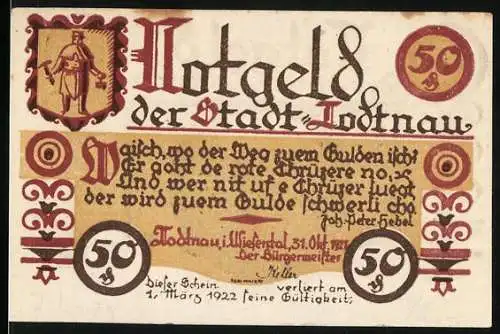 Notgeld
der Stadt Todtnau
50 ₰
Waisch, wo der Weg zuem Gulden isch?
Er goht de rote Chrüzere no,
Und wer nit uf e Chrüzer luegt
der wird zuem Gulde schwerli cho.
Joh. Peter Hebel
Todtnau i/Wiesental, 31. Okt. 1921
Der Bürgermeister
Keller
50 ₰
50 ₰
Dieser Schein verliert am
1. März 1922 seine Gültigkeit;